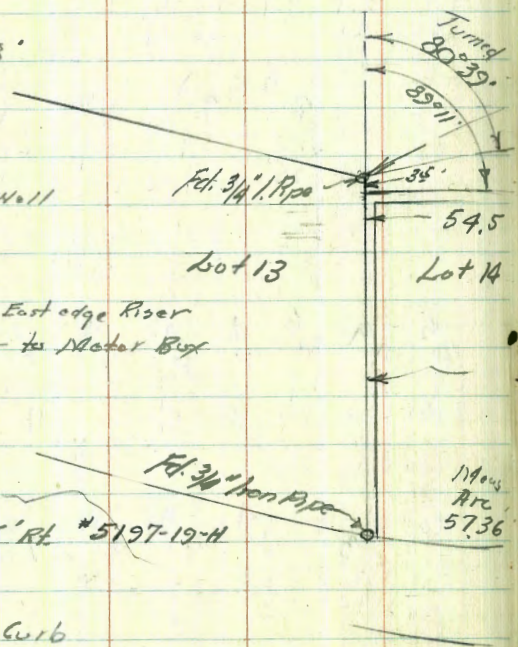 Turned
80°39'
89°11'
Fd. 3/4" I. Pipe
35'
Wall
54.5
Lot 13
Lot 14
East edge Riser
to Meter Box
Fd. 3/4" Iron Pipe
Meas
Arc
57.36
Rt. #5197-19-H
Curb